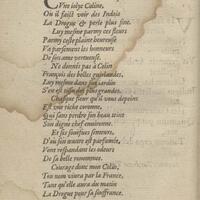 Vive iolye Coline,
On il sailt voir des Indois
La Drogue & perle plus fine.
Luy mesme parmy ces fleurs
Par my ceste plaine heureuse
Va parsemant les honneurs
De son ame vertueuse.
Ne donnés pas à Colin
François des belles guirlandes,
Luy mesme dans son
S'en est des plus grandes.
Chaque fleur qu'il vous depeint
Est une riche coronne,
Qui sans perdre son beau teint
Son digne chef environne.
Et ses souefves senteurs,
D'où son œuvre est parfumée,
Vont respandant les odeurs
De sa belle renommee.
Courage donc mon Colin,
Ton nom vivra par la France,
Tant qu'elle aura du matin
La Drogue pour sa souffrance.